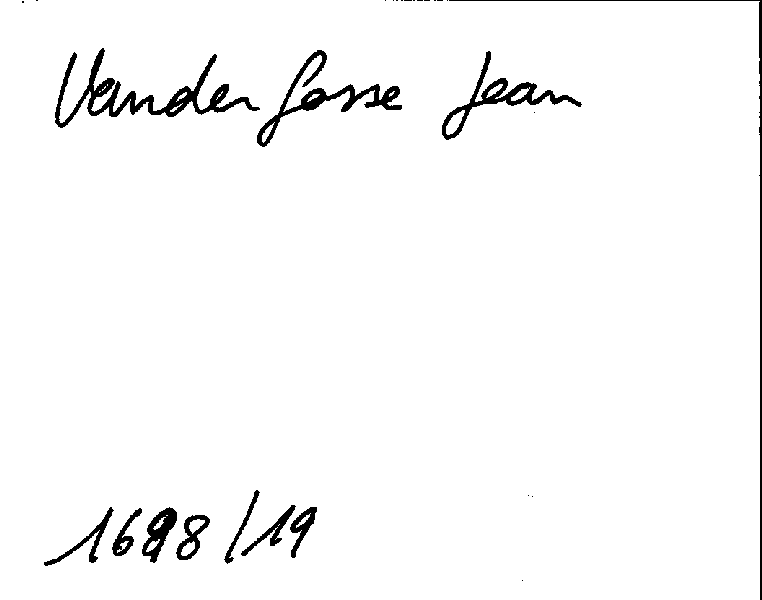 Vanderfosse Jean
1698/19